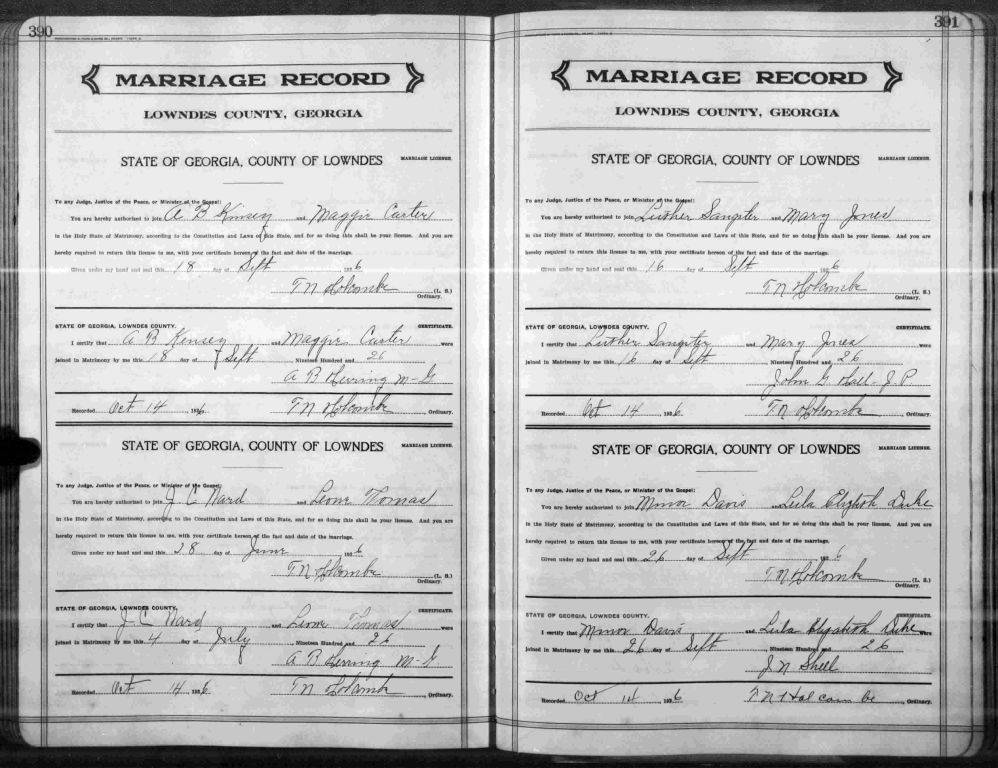 390
MARRIAGE RECORD
LOWNDES COUNTY, GEORGIA
STATE OF GEORGIA, COUNTY OF LOWNDES MARRIAGE LICENSE.
To any Judge, Justice of the Peace, or Minister of the Gospel:
You are hereby authorized to join A B Kinsey and Maggie Carter
in the Holy State of Matrimony, according to the Constitution and Laws of this State, and for so doing this shall be your license. And you are
hereby required to return this license to me, with your certificate hereon of the fact and date of the marriage.
Given under my hand and seal this 18 day of Sept 1926
T N Holcombe (L. S.)
Ordinary.
STATE OF GEORGIA, LOWNDES COUNTY. CERTIFICATE.
I certify that A B Kensey and Maggie Carter were
joined in Matrimony by me this 18 day of Sept Nineteen Hundred and 26
A B Herring M-G
Recorded Oct 14 1926. T N Holcombe, Ordinary.
STATE OF GEORGIA, COUNTY OF LOWNDES MARRIAGE LICENSE.
To any Judge, Justice of the Peace, or Minister of the Gospel:
You are hereby authorized to join J C Ward and Leone Thomas
in the Holy State of Matrimony, according to the Constitution and Laws of this State, and for so doing this shall be your license. And you are
hereby required to return this license to me, with your certificate hereon of the fact and date of the marriage.
Given under my hand and seal this 28 day of June 1926
T N Holcombe (L. S.)
Ordinary.
STATE OF GEORGIA, LOWNDES COUNTY. CERTIFICATE.
I certify that J C Ward and Leone Thomas were
joined in Matrimony by me this 4 day of July Nineteen Hundred and 26
A B Herring M-G
Recorded Oct 14 1926. T N Holcombe, Ordinary.
391
MARRIAGE RECORD
LOWNDES COUNTY, GEORGIA
STATE OF GEORGIA, COUNTY OF LOWNDES MARRIAGE LICENSE.
To any Judge, Justice of the Peace, or Minister of the Gospel:
You are hereby authorized to join Luther Sangster and Mary Jones
in the Holy State of Matrimony, according to the Constitution and Laws of this State, and for so doing this shall be your license. And you are
hereby required to return this license to me, with your certificate hereon of the fact and date of the marriage.
Given under my hand and seal this 16 day of Sept 1926
T N Holcombe (L. S.)
Ordinary.
STATE OF GEORGIA, LOWNDES COUNTY. CERTIFICATE.
I certify that Luther Sangster and Mary Jones were
joined in Matrimony by me this 16 day of Sept Nineteen Hundred and 26
John G Hall - J. P.
Recorded Oct 14 1926. T N Holcombe, Ordinary.
STATE OF GEORGIA, COUNTY OF LOWNDES MARRIAGE LICENSE.
To any Judge, Justice of the Peace, or Minister of the Gospel:
You are hereby authorized to join Minor Davis and Leila Elizabeth Duke
in the Holy State of Matrimony, according to the Constitution and Laws of this State, and for so doing this shall be your license. And you are
hereby required to return this license to me, with your certificate hereon of the fact and date of the marriage.
Given under my hand and seal this 26 day of Sept 1926
T N Holcombe (L. S.)
Ordinary.
STATE OF GEORGIA, LOWNDES COUNTY. CERTIFICATE.
I certify that Minor Davis and Leila Elizabeth Duke were
joined in Matrimony by me this 26 day of Sept Nineteen Hundred and 26
J N Shell
Recorded Oct 14 1926 T N Holcombe, Ordinary.